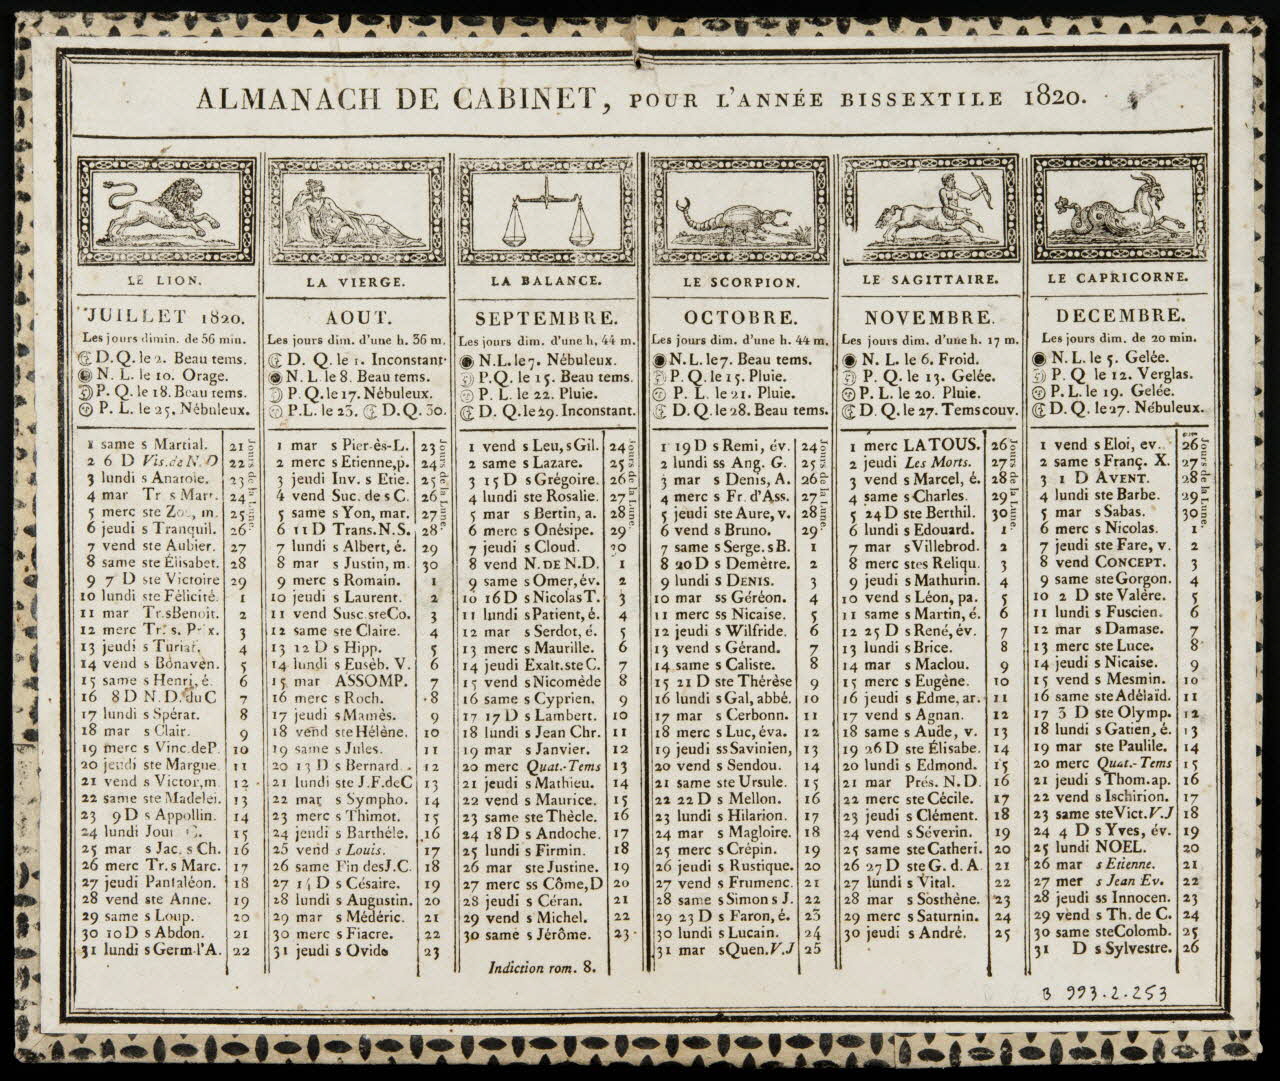 ALMANACH DE CABINET, POUR L'ANNÉE BISSEXTILE 1820.
LE LION.
JUILLET 1820.
Les jours dimin. de 56 min.
D. Q. le 2. Beau tems.
N. L. le 10. Orage.
P. Q. le 18. Beau tems.
P. L. le 25. Nébuleux.
Jours de la Lune.
1 same s Martial. 21
2 6 D Vis. de N. D 22
3 lundi s Anatole. 23
4 mar Tr s Mart. 24
5 merc ste Zoé, m. 25
6 jeudi s Tranquil. 26
7 vend ste Aubier. 27
8 same ste Élisabet. 28
9 7 D ste Victoire 29
10 lundi ste Félicité. 1
11 mar Tr. s Benoit. 2
12 merc Tr. s. Prix. 3
13 jeudi s Turiaf. 4
14 vend s Bonaven. 5
15 same s Henri, é. 6
16 8 D N. D. du C 7
17 lundi s Spérat. 8
18 mar s Clair. 9
19 merc s Vinc. de P. 10
20 jeudi ste Margue. 11
21 vend s Victor, m 12
22 same ste Madelei. 13
23 9 D s Appollin. 14
24 lundi Jour C. 15
25 mar s Jac. s Ch. 16
26 merc Tr. s Marc. 17
27 jeudi Pantaléon. 18
28 vend ste Anne. 19
29 same s Loup. 20
30 10 D s Abdon. 21
31 lundi s Germ. l'A. 22
LA VIERGE.
AOUT.
Les jours dim. d'une h. 36 m.
D. Q. le 1. Inconstant.
N. L. le 8. Beau tems.
P. Q. le 17. Nébuleux.
P. L. le 23. D. Q. 30.
Jours de la Lune.
1 mar s Pier-ès-L. 23
2 merc s Etienne, p. 24
3 jeudi Inv. s Etie. 25
4 vend Suc. de s C. 26
5 same s Yon, mar. 27
6 11 D Trans. N. S. 28
7 lundi s Albert, é. 29
8 mar s Justin, m. 30
9 merc s Romain. 1
10 jeudi s Laurent. 2
11 vend Susc. ste Co. 3
12 same ste Claire. 4
13 12 D s Hipp. 5
14 lundi s Eusèb. V. 6
15 mar ASSOMP. 7
16 merc s Roch. 8
17 jeudi s Mamès. 9
18 vend ste Hélène. 10
19 same s Jules. 11
20 13 D s Bernard. 12
21 lundi ste J. F. de C 13
22 mar s Sympho. 14
23 merc s Thimot. 15
24 jeudi s Barthéle. 16
25 vend s Louis. 17
26 same Fin des J. C. 18
27 14 D s Césaire. 19
28 lundi s Augustin. 20
29 mar s Médéric. 21
30 merc s Fiacre. 22
31 jeudi s Ovide 23
LA BALANCE.
SEPTEMBRE.
Les jours dim. d'une h. 44 m.
N. L. le 7. Nébuleux.
P. Q. le 15. Beau tems.
P. L. le 22. Pluie.
D. Q. le 29. Inconstant.
Jours de la Lune.
1 vend s Leu, s Gil. 24
2 same s Lazare. 25
3 15 D s Grégoire. 26
4 lundi ste Rosalie. 27
5 mar s Bertin, a. 28
6 merc s Onésipe. 29
7 jeudi s Cloud. 30
8 vend N. DE N. D. 1
9 same s Omer, év. 2
10 16 D s Nicolas T. 3
11 lundi s Patient, é. 4
12 mar s Serdot, é. 5
13 merc s Maurille. 6
14 jeudi Exalt. ste C. 7
15 vend s Nicomède 8
16 same s Cyprien. 9
17 17 D s Lambert. 10
18 lundi s Jean Chr. 11
19 mar s Janvier. 12
20 merc Quat.-Tems 13
21 jeudi s Mathieu. 14
22 vend s Maurice. 15
23 same ste Thècle. 16
24 18 D s Andoche. 17
25 lundi s Firmin. 18
26 mar ste Justine. 19
27 merc ss Côme, D 20
28 jeudi s Céran. 21
29 vend s Michel. 22
30 same s Jérôme. 23
Indiction rom. 8.
LE SCORPION.
OCTOBRE.
Les jours dim. d'une h. 44 m.
N. L. le 7. Beau tems.
P. Q. le 15. Pluie.
P. L. le 21. Pluie.
D. Q. le 28. Beau tems.
Jours de la Lune.
1 19 D s Remi, év. 24
2 lundi ss Ang. G. 25
3 mar s Denis, A. 26
4 merc s Fr. d'Ass. 27
5 jeudi ste Aure, v. 28
6 vend s Bruno. 29
7 same s Serge. s B. 1
8 20 D s Demètre. 2
9 lundi s DENIS. 3
10 mar ss Géréon. 4
11 merc ss Nicaise. 5
12 jeudi s Wilfride. 6
13 vend s Gérand. 7
14 same s Caliste. 8
15 21 D ste Thérèse 9
16 lundi s Gal, abbé. 10
17 mar s Cerbonn. 11
18 merc s Luc, éva. 12
19 jeudi ss Savinien, 13
20 vend s Sendou. 14
21 same ste Ursule. 15
22 22 D s Mellon. 16
23 lundi s Hilarion. 17
24 mar s Magloire. 18
25 merc s Crépin. 19
26 jeudi s Rustique. 20
27 vend s Frumenc. 21
28 same s Simon s J. 22
29 23 D s Faron, é. 23
30 lundi s Lucain. 24
31 mar s Quen. V. J 25
LE SAGITTAIRE.
NOVEMBRE.
Les jours dim. d'une h. 17 m.
N. L. le 6. Froid.
P. Q. le 13. Gelée.
P. L. le 20. Pluie.
D. Q. le 27. Tems couv.
Jours de la Lune.
1 merc LA TOUS. 26
2 jeudi Les Morts. 27
3 vend s Marcel, é. 28
4 same s Charles. 29
5 24 D ste Berthil. 30
6 lundi s Edouard. 1
7 mar s Villebrod. 2
8 merc stes Reliqu. 3
9 jeudi s Mathurin. 4
10 vend s Léon, pa. 5
11 same s Martin, é. 6
12 25 D s René, év. 7
13 lundi s Brice. 8
14 mar s Maclou. 9
15 merc s Eugène. 10
16 jeudi s Edme, ar. 11
17 vend s Agnan. 12
18 same s Aude, v. 13
19 26 D ste Élisabe. 14
20 lundi s Edmond. 15
21 mar Prés. N. D. 16
22 merc ste Cécile. 17
23 jeudi s Clément. 18
24 vend s Séverin. 19
25 same ste Catheri. 20
26 27 D ste G. d. A. 21
27 lundi s Vital. 22
28 mar s Sosthène. 23
29 merc s Saturnin. 24
30 jeudi s André. 25
LE CAPRICORNE.
DECEMBRE.
Les jours dim. de 20 min.
N. L. le 5. Gelée.
P. Q le 12. Verglas.
P. L. le 19. Gelée.
D. Q. le 27. Nébuleux.
Jours de la Lune.
1 vend s Eloi, ev. 26
2 same s Franç. X. 27
3 1 D AVENT. 28
4 lundi ste Barbe. 29
5 mar s Sabas. 30
6 merc s Nicolas. 1
7 jeudi ste Fare, v. 2
8 vend CONCEPT. 3
9 same ste Gorgon. 4
10 2 D ste Valère. 5
11 lundi s Fuscien. 6
12 mar s Damase. 7
13 merc ste Luce. 8
14 jeudi s Nicaise. 9
15 vend s Mesmin. 10
16 same ste Adélaïd. 11
17 3 D ste Olymp. 12
18 lundi s Gatien, é. 13
19 mar ste Paulile. 14
20 merc Quat.-Tems 15
21 jeudi s Thom. ap. 16
22 vend s Ischirion. 17
23 same ste Vict. V. J 18
24 4 D s Yves, év. 19
25 lundi NOEL. 20
26 mar s Etienne. 21
27 mer s Jean Ev. 22
28 jeudi ss Innocen. 23
29 vend s Th. de C. 24
30 same ste Colomb. 25
31 D s Sylvestre. 26
B 993.2.253